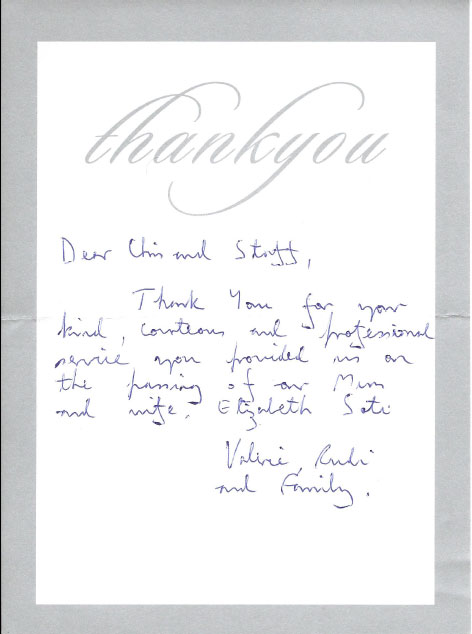 thankyou
Dear Chris and Staff,
Thank You for your
kind, courteous and professional
service you provided us on
the passing of our Mum
and wife. Elizabeth Soti
Valerie, Rudi
and Family.